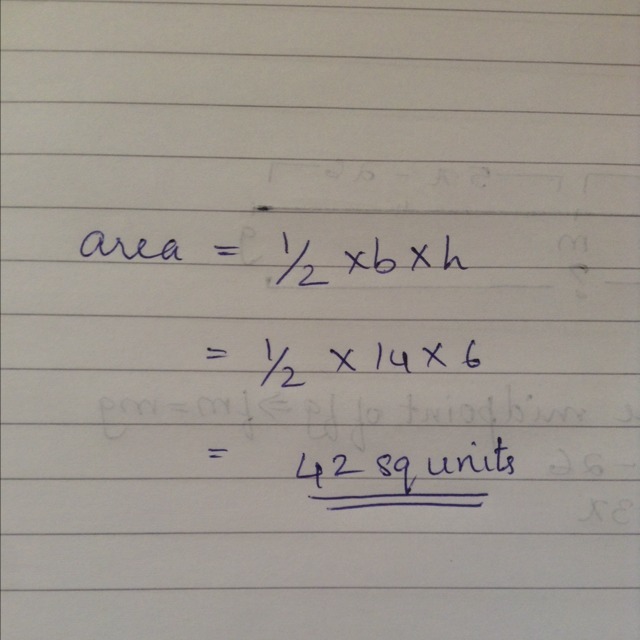 area = 1/2 × b × h
= 1/2 × 14 × 6
= 42 sq units